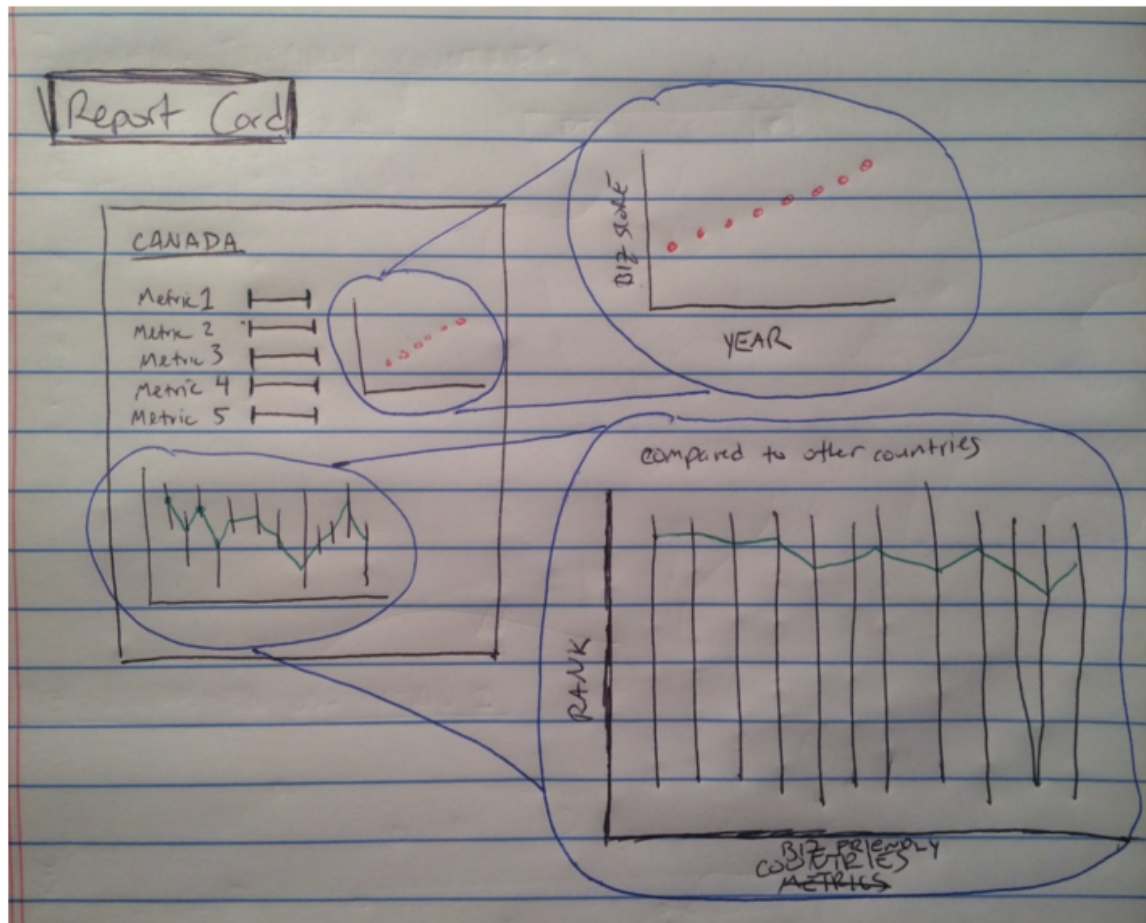 Report Card
CANADA
Metric 1
Metric 2
Metric 3
Metric 4
Metric 5
BIZ score
YEAR
compared to other countries
RANK
BIZ FRIENDLY
COUNTRIES
METRICS